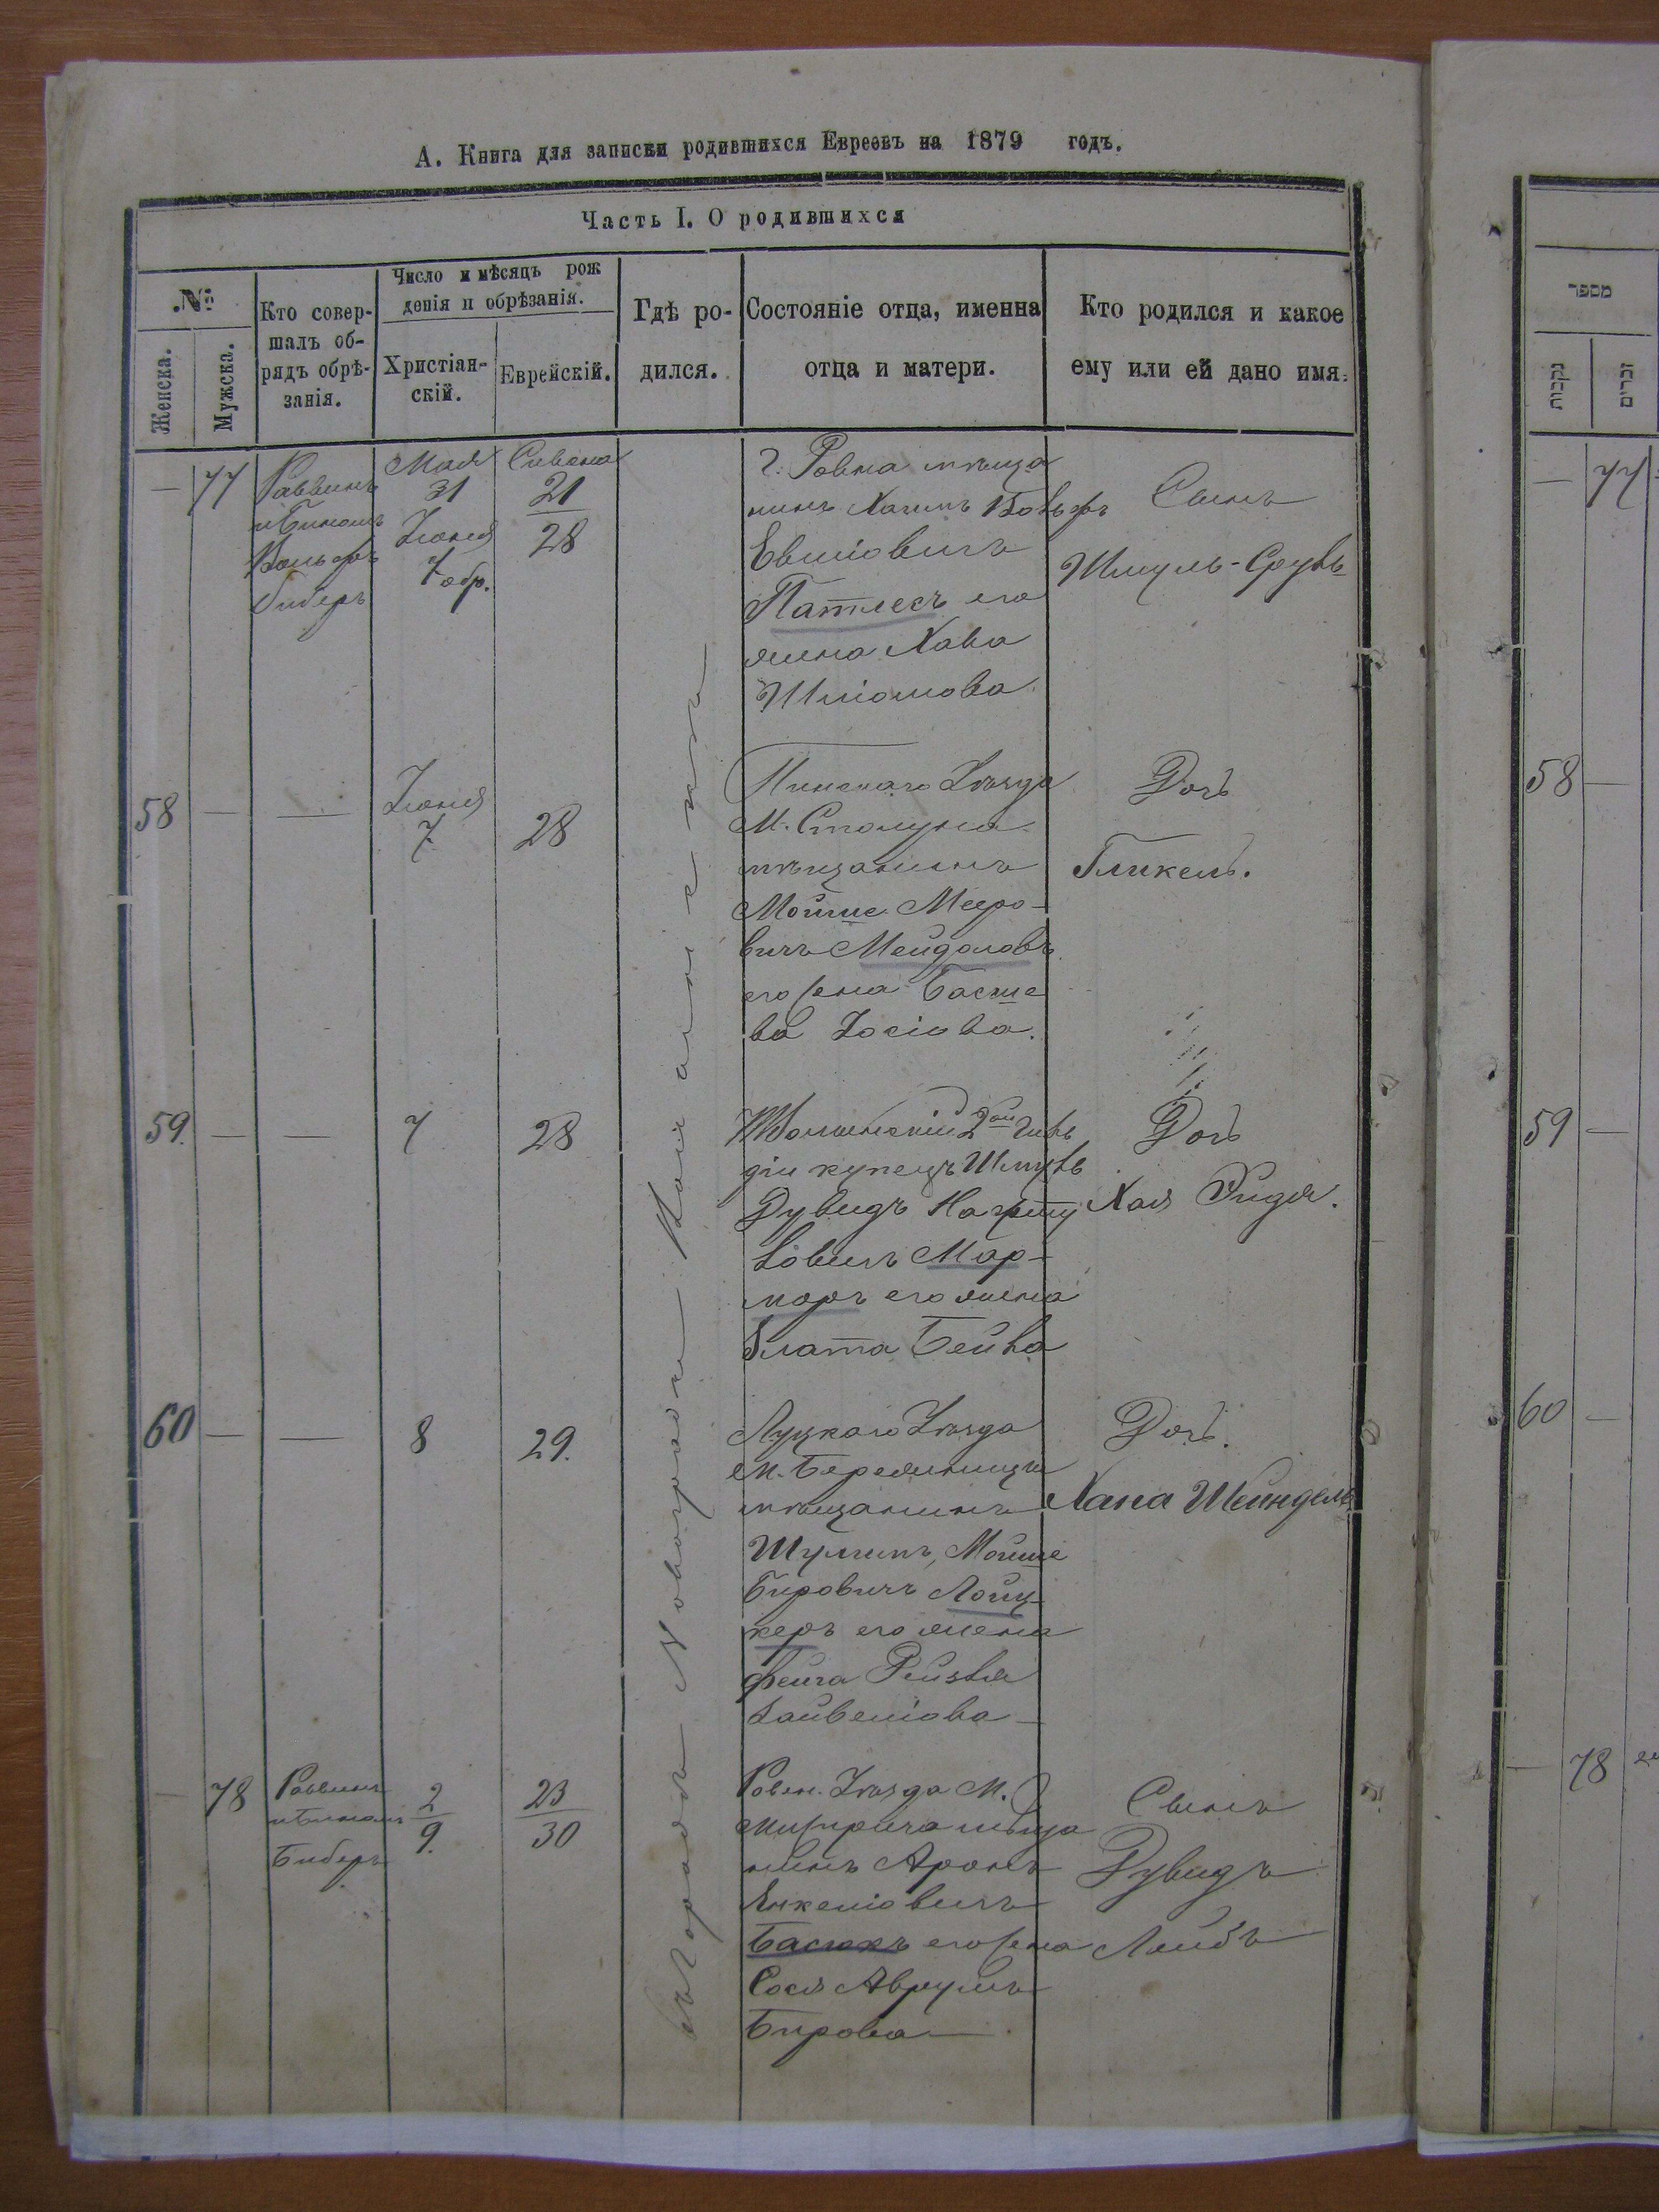 А. Книга для записки родившихся Евреевъ на 1879 годъ.
Часть I. О родившихся
№
Женска.
Мужска.
Кто совер-
шалъ об-
рядъ обрѣ-
занія.
Число и мѣсяцъ рож
денія и обрѣзанія.
Христіан-
скій.
Еврейскій.
Гдѣ ро-
дился.
Состояніе отца, именна
отца и матери.
Кто родился и какое
ему или ей дано имя.
въ Городѣ Новоградѣ Волынскѣ
— 77
Раввинъ
Вольфъ
Биберъ
Мая
31
Іюня
7 обр.
Сивона
21
28
г. Ровна мѣща
нинъ Хаимъ Вольфъ
Патлесъ его
жена Хава
Шліомова
Сынъ
Шмуль-Сруль
58 — —
Іюня
7
28
Пинскаго Уѣзда
М. Столина
мѣщанинъ
Мойше Мееро-
вичъ Мейдоловъ
его жена Басше
ва Іосіова.
Дочь
Гликель.
59. — —
7
28
2ой Гиль
діи купецъ Шмуль
Дувидъ
Мар-
моръ его жена
Злата Бейла
Дочь
Хая Эидля.
60 — —
8
29.
Луцкаго Уѣзда
м. Бережницы
мѣщанинъ
Шулимъ, Мойше
Бировичъ Лойц-
керъ его жена
Фейга Рейзля
Лайвеліова
Дочь.
Хана Шейндель
— 78
Раввинъ
Биберъ
2
9.
23
30
Ровен. Уѣзда М.
Межирича мѣща
нинъ Аронъ
Янкеліовичъ
Басюкъ его жена
Сося Аврумъ
Бирова
Сынъ
Дувидъ
Лейбъ
מספר
נקבות
זכרים
— 77
58 —
59 —
60 —
— 78